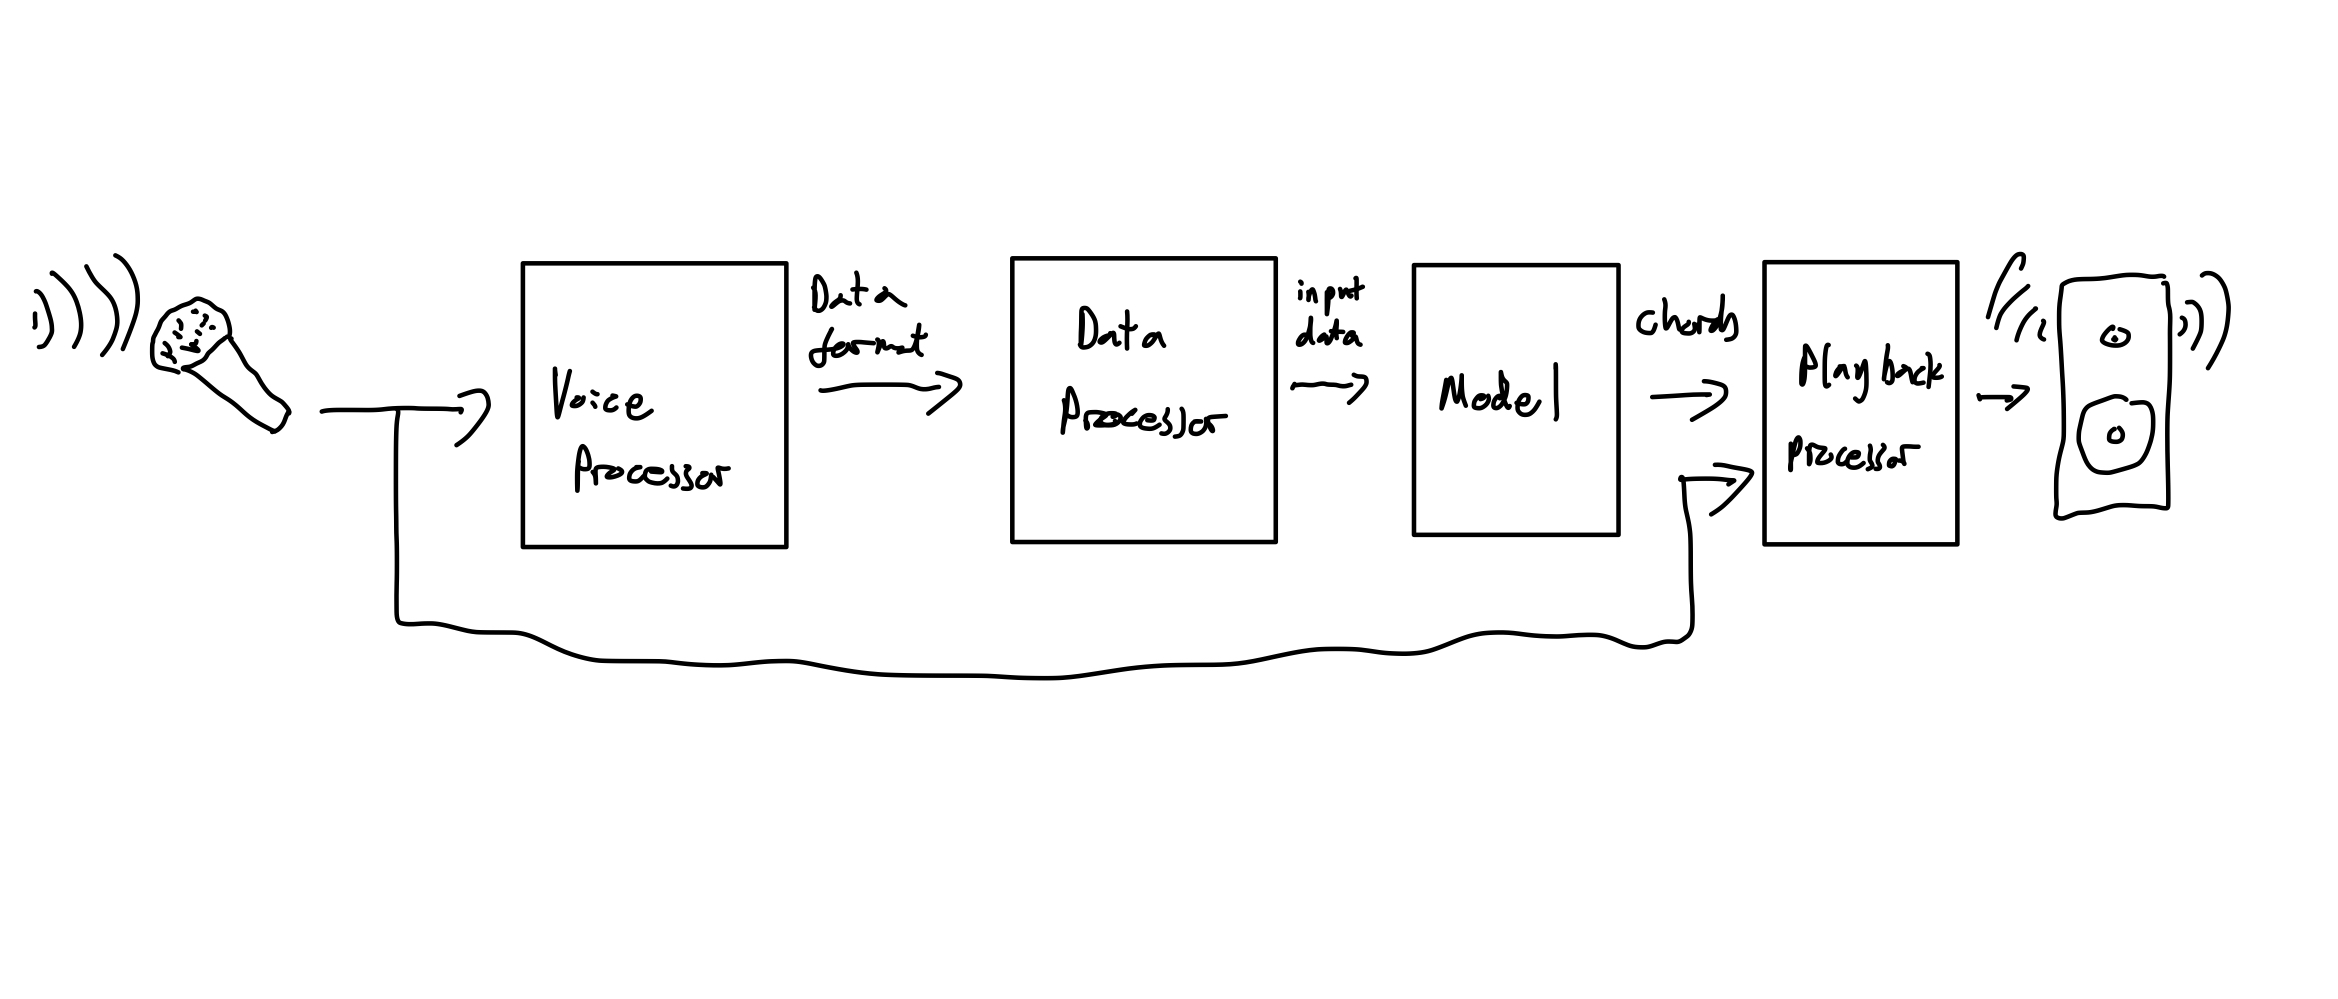 Voice
Processor
Data
format
Data
Processor
input
data
Model
chords
Playback
processor